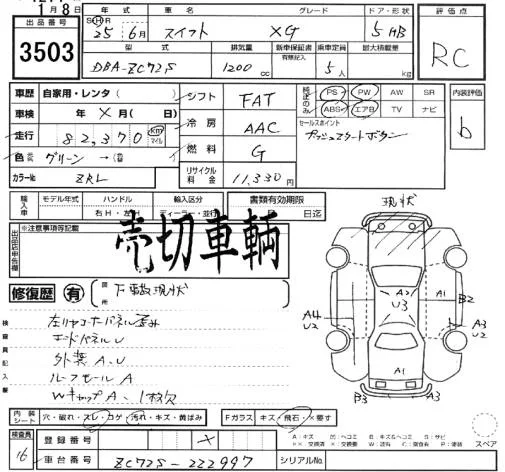 1月8日
出品番号
3503
年式
SHR
25年6月
車名
スイフト
グレード
XG
ドア・形状
5 HB
評価点
RC
型式
DBA-ZC72S
排気量
1200 cc
新車保証書
有無記入
乗車定員
5人
最大積載量
kg
車歴 自家用・レンタ( )
シフト FAT
純正のみ
PS PW AW SR
ABS エアB TV ナビ
内装評価
b
車検 年 月( 日)
冷房 AAC
セールスポイント
プッシュスタートボタン
走行 82,370 km マイル
燃料 G
色 グリーン →(替 )
カラーNo ZRL
リサイクル料金 11,330円
輸入車
モデル年式
ハンドル
右H・左H
輸入区分
ディーラー・並行
書類有効期限
日迄
現状
出品店申告欄
※注意事項等記載
売切車輌
修復歴 有
箇所
下載現状
検査員記入欄
左リヤコーナーパネル歪み
エンドパネルU
外装A、U
ルーフモールA
WキャップA、1枚欠
A2
A1
U3
B2
A4
U2
A3
U2
A1
B3
A3
内装シート
穴・破れ・スレ・コゲ
汚れ・キズ・黄ばみ
Fガラス
キズ・飛石・×要す
検査員
16
登録番号
×
車台番号
ZC72S-222997
シリアルNo.
スペア